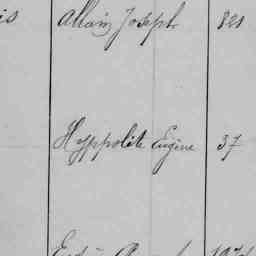 is Allain Joseph 821
Hyppolite Eugène 37